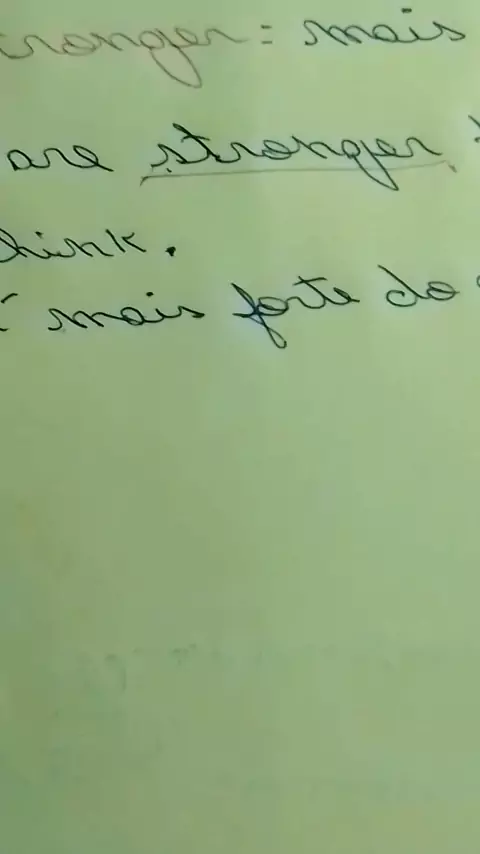 tronger: mais
are stronger
think.
mais forte do